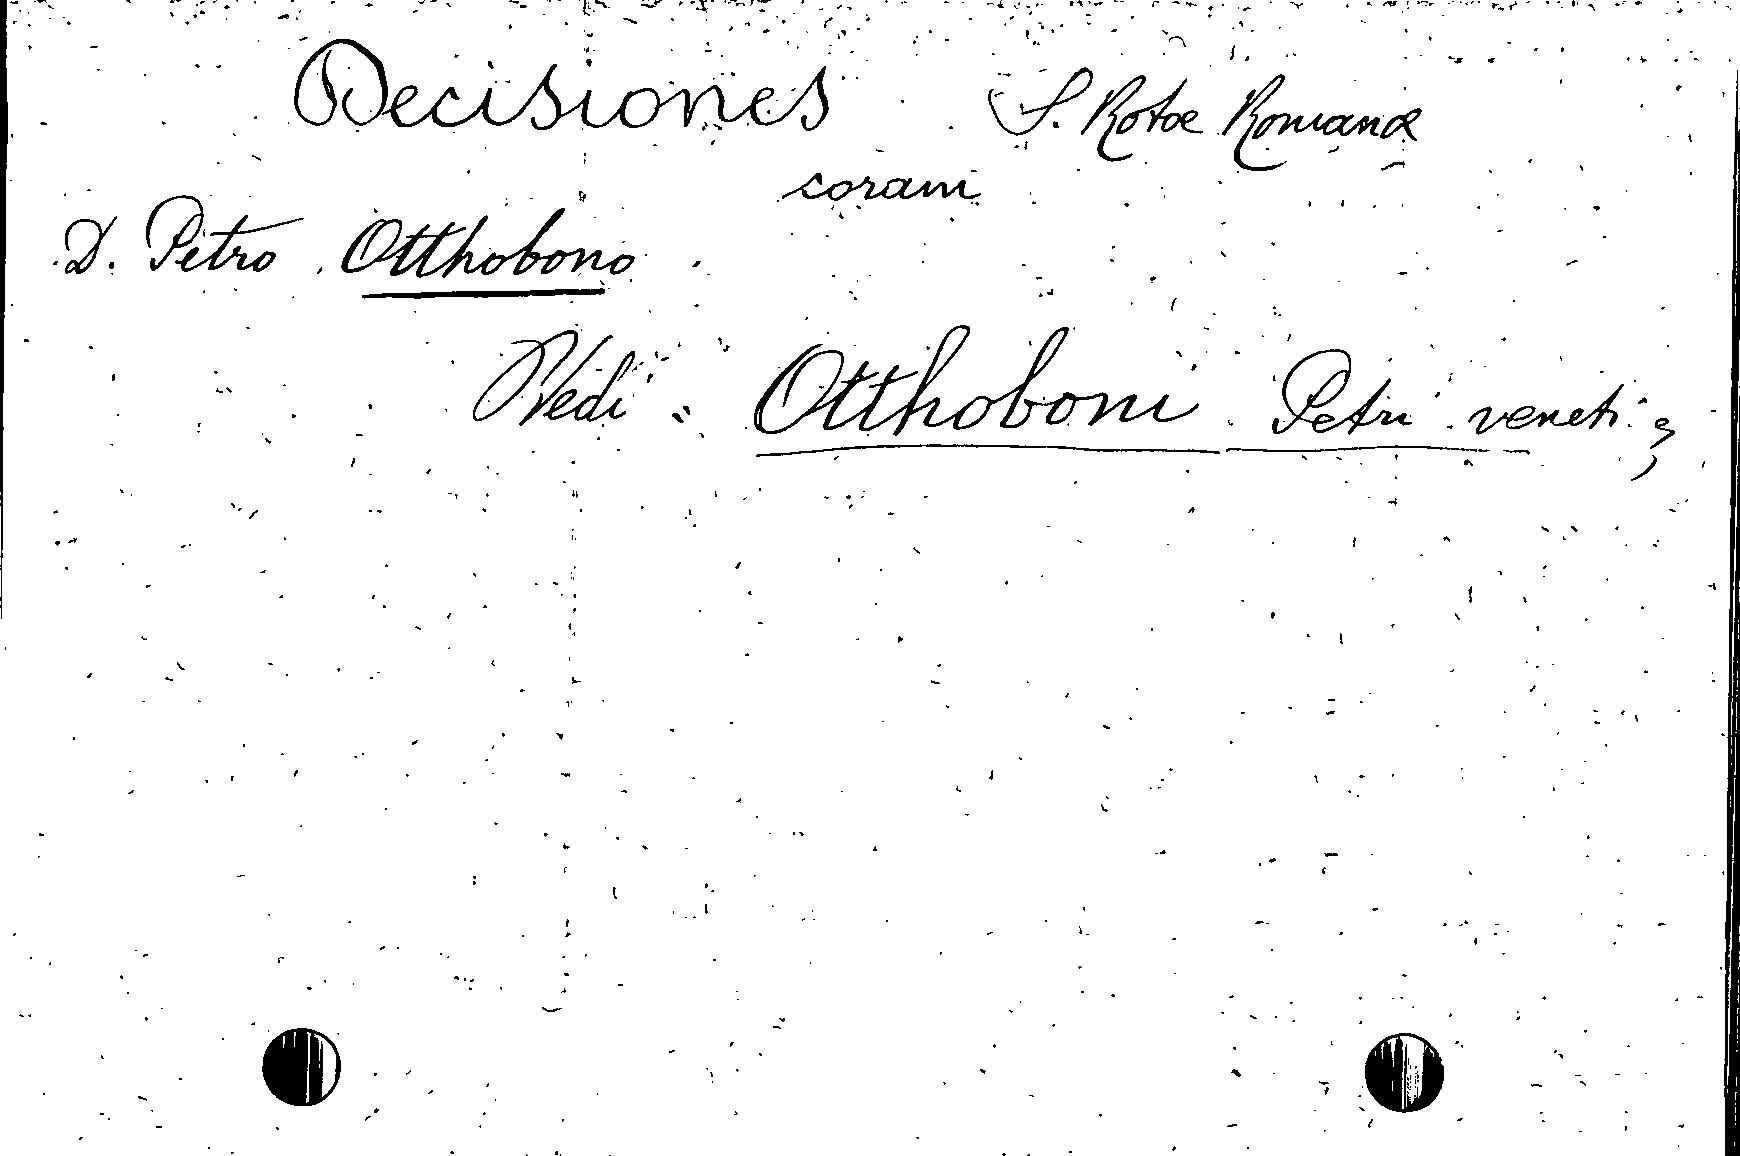 Decisiones S. Rotae Romanae
coram
D. Petro Otthobono
Vedi " Otthoboni Petri veneti "